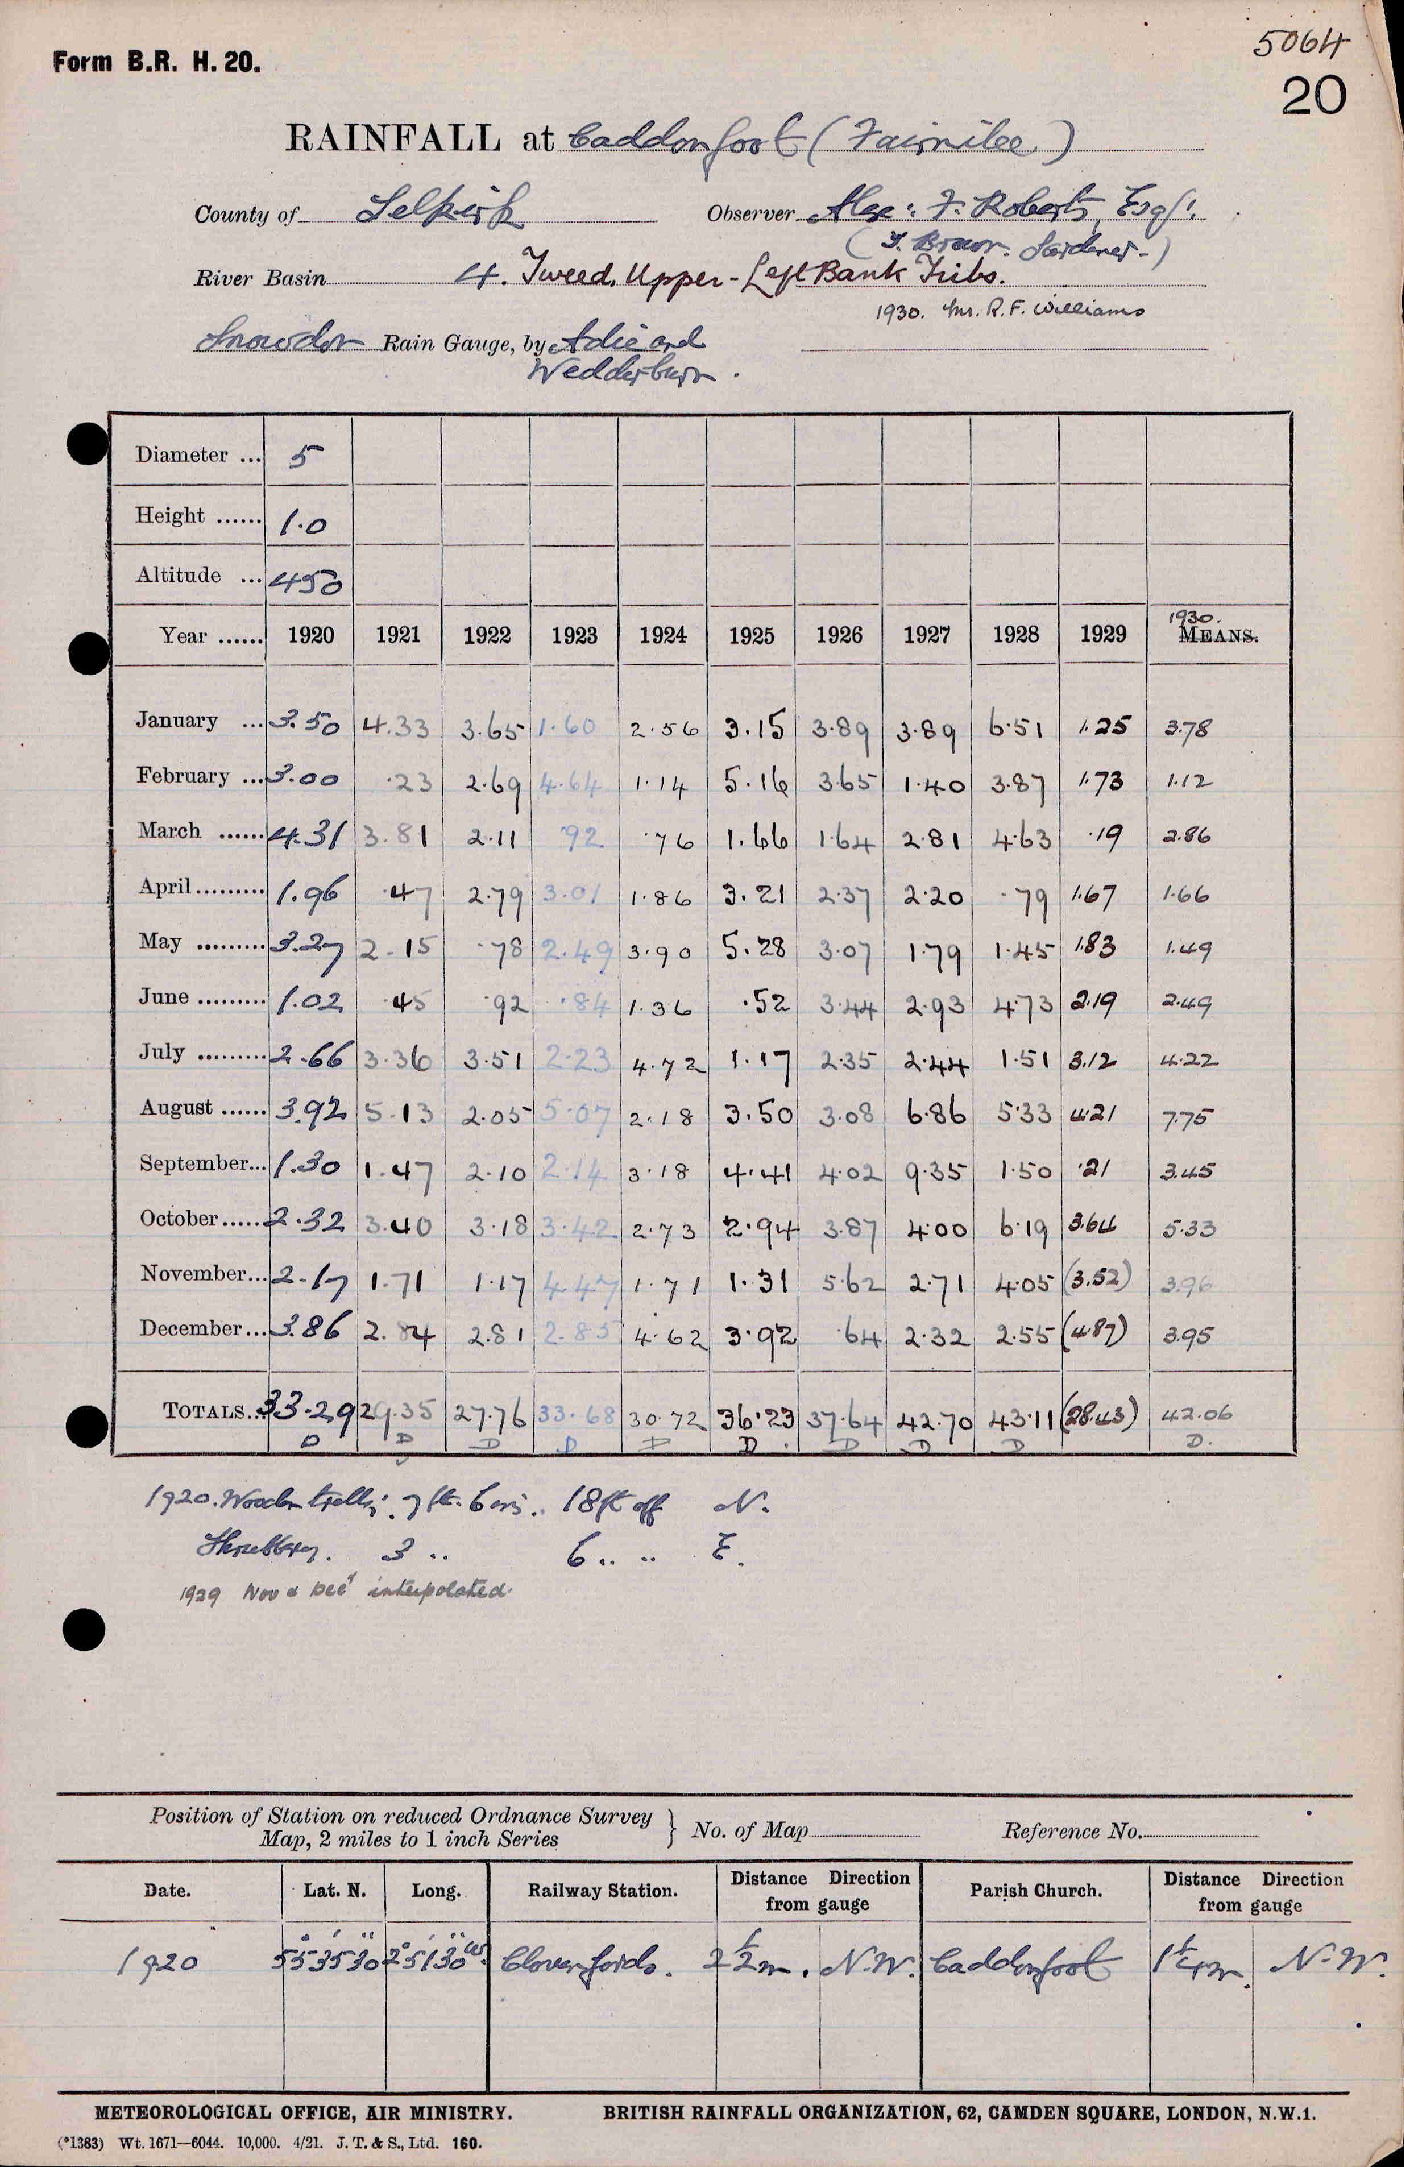 5064
Form B.R. H. 20.
20
RAINFALL at Caddonfoot (Fairnilee)
County of Selkirk Observer Alex: F. Roberts, Esqr.
(T. Brown. Gardener.)
River Basin 4. Tweed, Upper - Left Bank Tribs.
1930. Mr. R. F. Williams
Snowdon Rain Gauge, by Adie and
Wedderburn.
Diameter ... 5
Height ...... 1.0
Altitude ... 450
1930.
Year ...... 1920 1921 1922 1923 1924 1925 1926 1927 1928 1929 MEANS.
January ... 3.50 4.33 3.65 1.60 2.56 3.15 3.89 3.89 6.51 1.25 3.78
February ... 3.00 .23 2.69 4.64 1.14 5.16 3.65 1.40 3.87 1.73 1.12
March ...... 4.31 3.81 2.11 .92 .76 1.66 1.64 2.81 4.63 .19 2.86
April ......... 1.96 .47 2.79 3.01 1.86 3.21 2.37 2.20 .79 1.67 1.66
May ......... 3.27 2.15 .78 2.49 3.90 5.28 3.07 1.79 1.45 1.83 1.49
June ......... 1.02 .45 .92 .84 1.36 .52 3.44 2.93 4.73 2.19 2.49
July ......... 2.66 3.36 3.51 2.23 4.72 1.17 2.35 2.44 1.51 3.12 4.22
August ...... 3.92 5.13 2.05 5.07 2.18 3.50 3.08 6.86 5.33 4.21 7.75
September... 1.30 1.47 2.10 2.14 3.18 4.41 4.02 9.35 1.50 .21 3.45
October...... 2.32 3.40 3.18 3.42 2.73 2.94 3.87 4.00 6.19 3.64 5.33
November... 2.17 1.71 1.17 4.47 1.71 1.31 5.62 2.71 4.05 (3.52) 3.96
December ... 3.86 2.84 2.81 2.85 4.62 3.92 .64 2.32 2.55 (4.87) 3.95
TOTALS... 33.29 29.35 27.76 33.68 30.72 36.23 37.64 42.70 43.11 (28.43) 42.06
D D D D D D D D D D.
1920. Wooden trellis. 7 ft. 6 ins.. 18 ft off N.
Shrubbery. 3 .. 6 .. .. E.
1929 Nov & Dec interpolated.
Position of Station on reduced Ordnance Survey
Map, 2 miles to 1 inch Series } No. of Map Reference No.
Date. Lat. N. Long. Railway Station. Distance from gauge Direction Parish Church. Distance from gauge Direction
1920 55° 35' 30" 2° 51' 30" W. Clovenfords. 2½ m. N.W. Caddonfoot 1¼ m. N.W.
METEOROLOGICAL OFFICE, AIR MINISTRY. BRITISH RAINFALL ORGANIZATION, 62, CAMDEN SQUARE, LONDON, N.W.1.
(*1383) Wt. 1671—6044. 10,000. 4/21. J. T. & S., Ltd. 160.